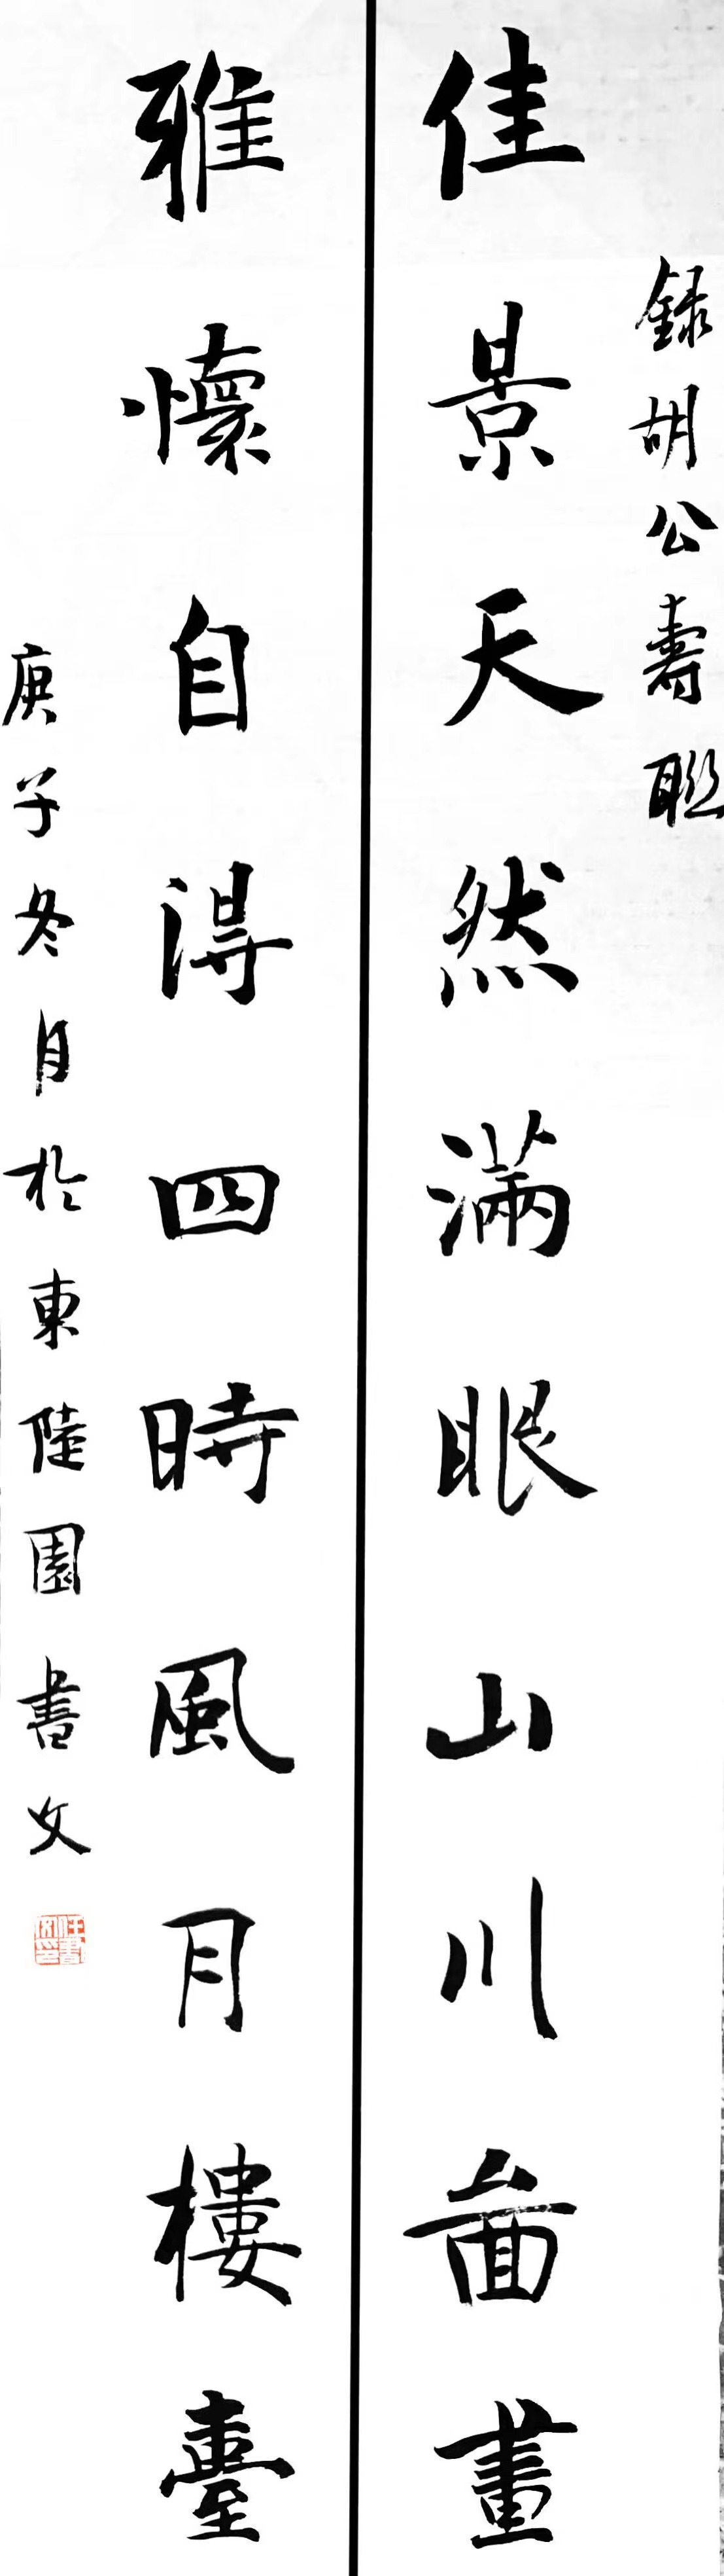 錄胡公壽聯
佳景天然滿眼山川畵畫
雅懷自得四時風月樓臺
庚子冬月於東陸園書文